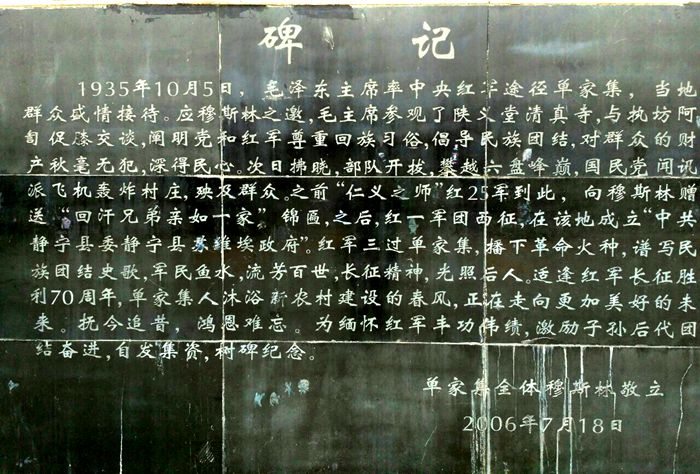 碑 记
1935年10月5日，毛泽东主席率中央红军途径单家集，当地
群众盛情接待。应穆斯林之邀，毛主席参观了陕义堂清真寺，与执坊阿
訇促膝交谈，阐明党和红军尊重回族习俗，倡导民族团结，对群众的财
产秋毫无犯，深得民心。次日拂晓，部队开拔，攀越六盘峰巅，国民党闻讯
派飞机轰炸村庄，殃及群众。之前“仁义之师”红25军到此，向穆斯林赠
送“回汗兄弟亲如一家”锦匾，之后，红一军团西征，在该地成立“中共
静宁县委静宁县苏维埃政府”。红军三过单家集，播下革命火种，谱写民
族团结史歌，军民鱼水，流芳百世，长征精神，光照后人。适逢红军长征胜
利70周年，单家集人沐浴新农村建设的春风，正在走向更加美好的未
来。抚今追昔，鸿恩难忘。为缅怀红军丰功伟绩，激励子孙后代团
结奋进，自发集资，树碑纪念。
单家集全体穆斯林敬立
2006年7月18日